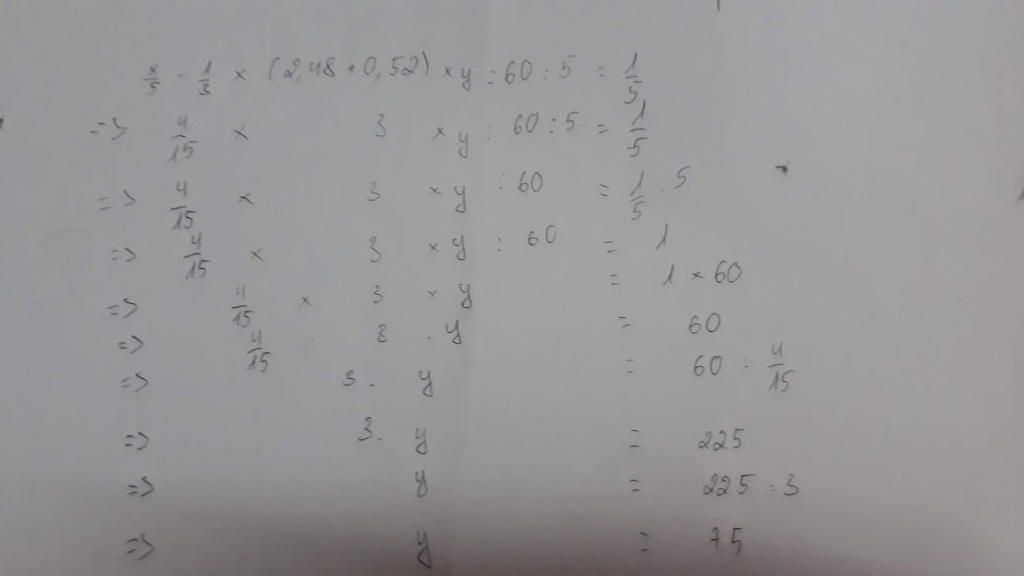 x/5 - 1/3 × (2,48 + 0,52) × y : 60 : 5 = 1/5
=> 4/15 × 3 × y : 60 : 5 = 1/5
=> 4/15 × 3 × y : 60 = 1/5 . 5
=> 4/15 × 3 × y : 60 = 1
=> 4/15 × 3 × y = 1 × 60
=> 4/15 . 3 . y = 60
=> 3 . y = 60 : 4/15
=> 3 . y = 225
=> y = 225 : 3
=> y = 75